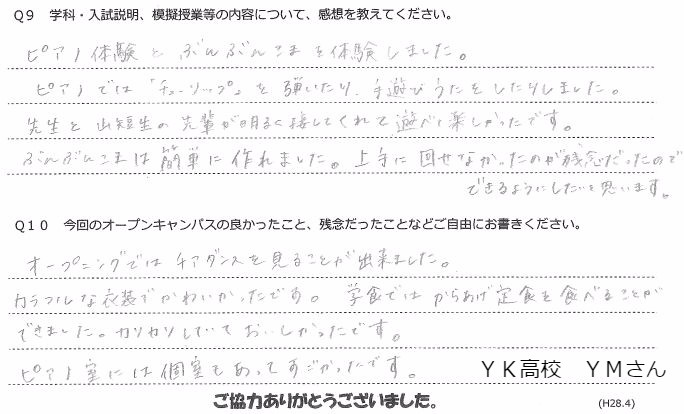 Q9 学科・入試説明、模擬授業等の内容について、感想を教えてください。
ピアノ体験とぶんぶんこまを体験しました。
ピアノでは「チューリップ」を弾いたり、手遊びうたをしたりしました。
先生と山短生の先輩が明るく接してくれて遊べて楽しかったです。
ぶんぶんこまは簡単に作れました。上手に回せなかったのが残念だったので
できるようにしたいと思います。
Q10 今回のオープンキャンパスの良かったこと、残念だったことなどご自由にお書きください。
オープニングではチアダンスを見ることが出来ました。
カラフルな衣装でかわいかったです。学食ではからあげ定食を食べることが
できました。カリカリしていておいしかったです。
ピアノ室には個室もあってすごかったです。
YK高校 YMさん
ご協力ありがとうございました。
(H28.4)